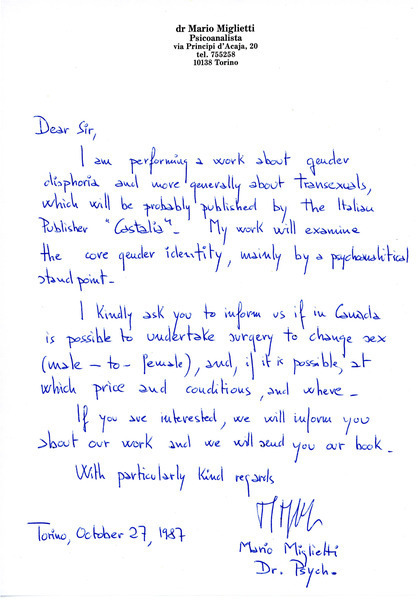 dr Mario Miglietti
Psicoanalista
via Principi d'Acaja, 20
tel. 755258
10138 Torino
Dear Sir,
I am performing a work about gender
disphoria and more generally about transexuals,
which will be probably published by the Italian
Publisher "Castalia". My work will examine
the core gender identity, mainly by a psychoanalitical
stand point.
I kindly ask you to inform us if in Canada
is possible to undertake surgery to change sex
(male - to - female), and, if it is possible, at
which price and conditions, and where.
If you are interested, we will inform you
about our work and we will send you our book.
With particularly kind regards
Torino, October 27, 1987
Mario Miglietti
Dr. Psych.